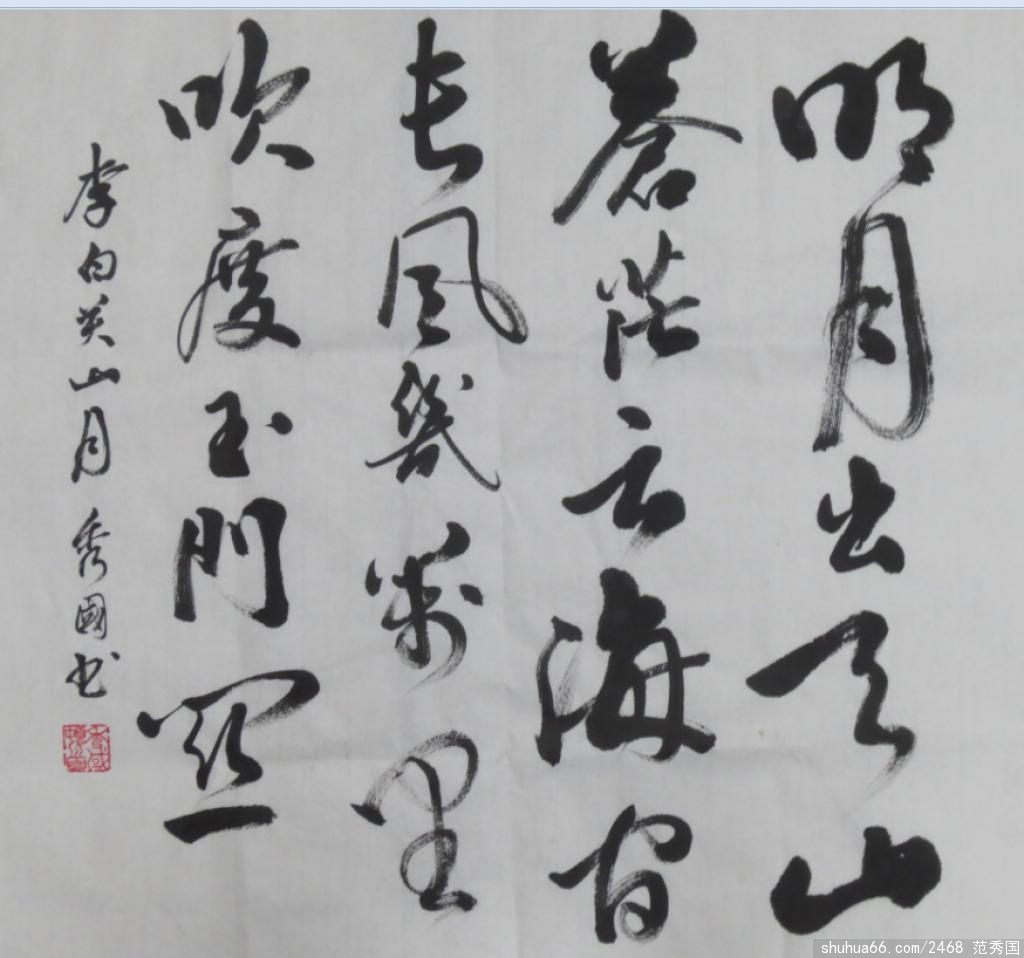 明月出天山
蒼茫云海間
長風幾萬里
吹度玉門關
李白关山月 秀國书
shuhua66.com/2468 范秀国